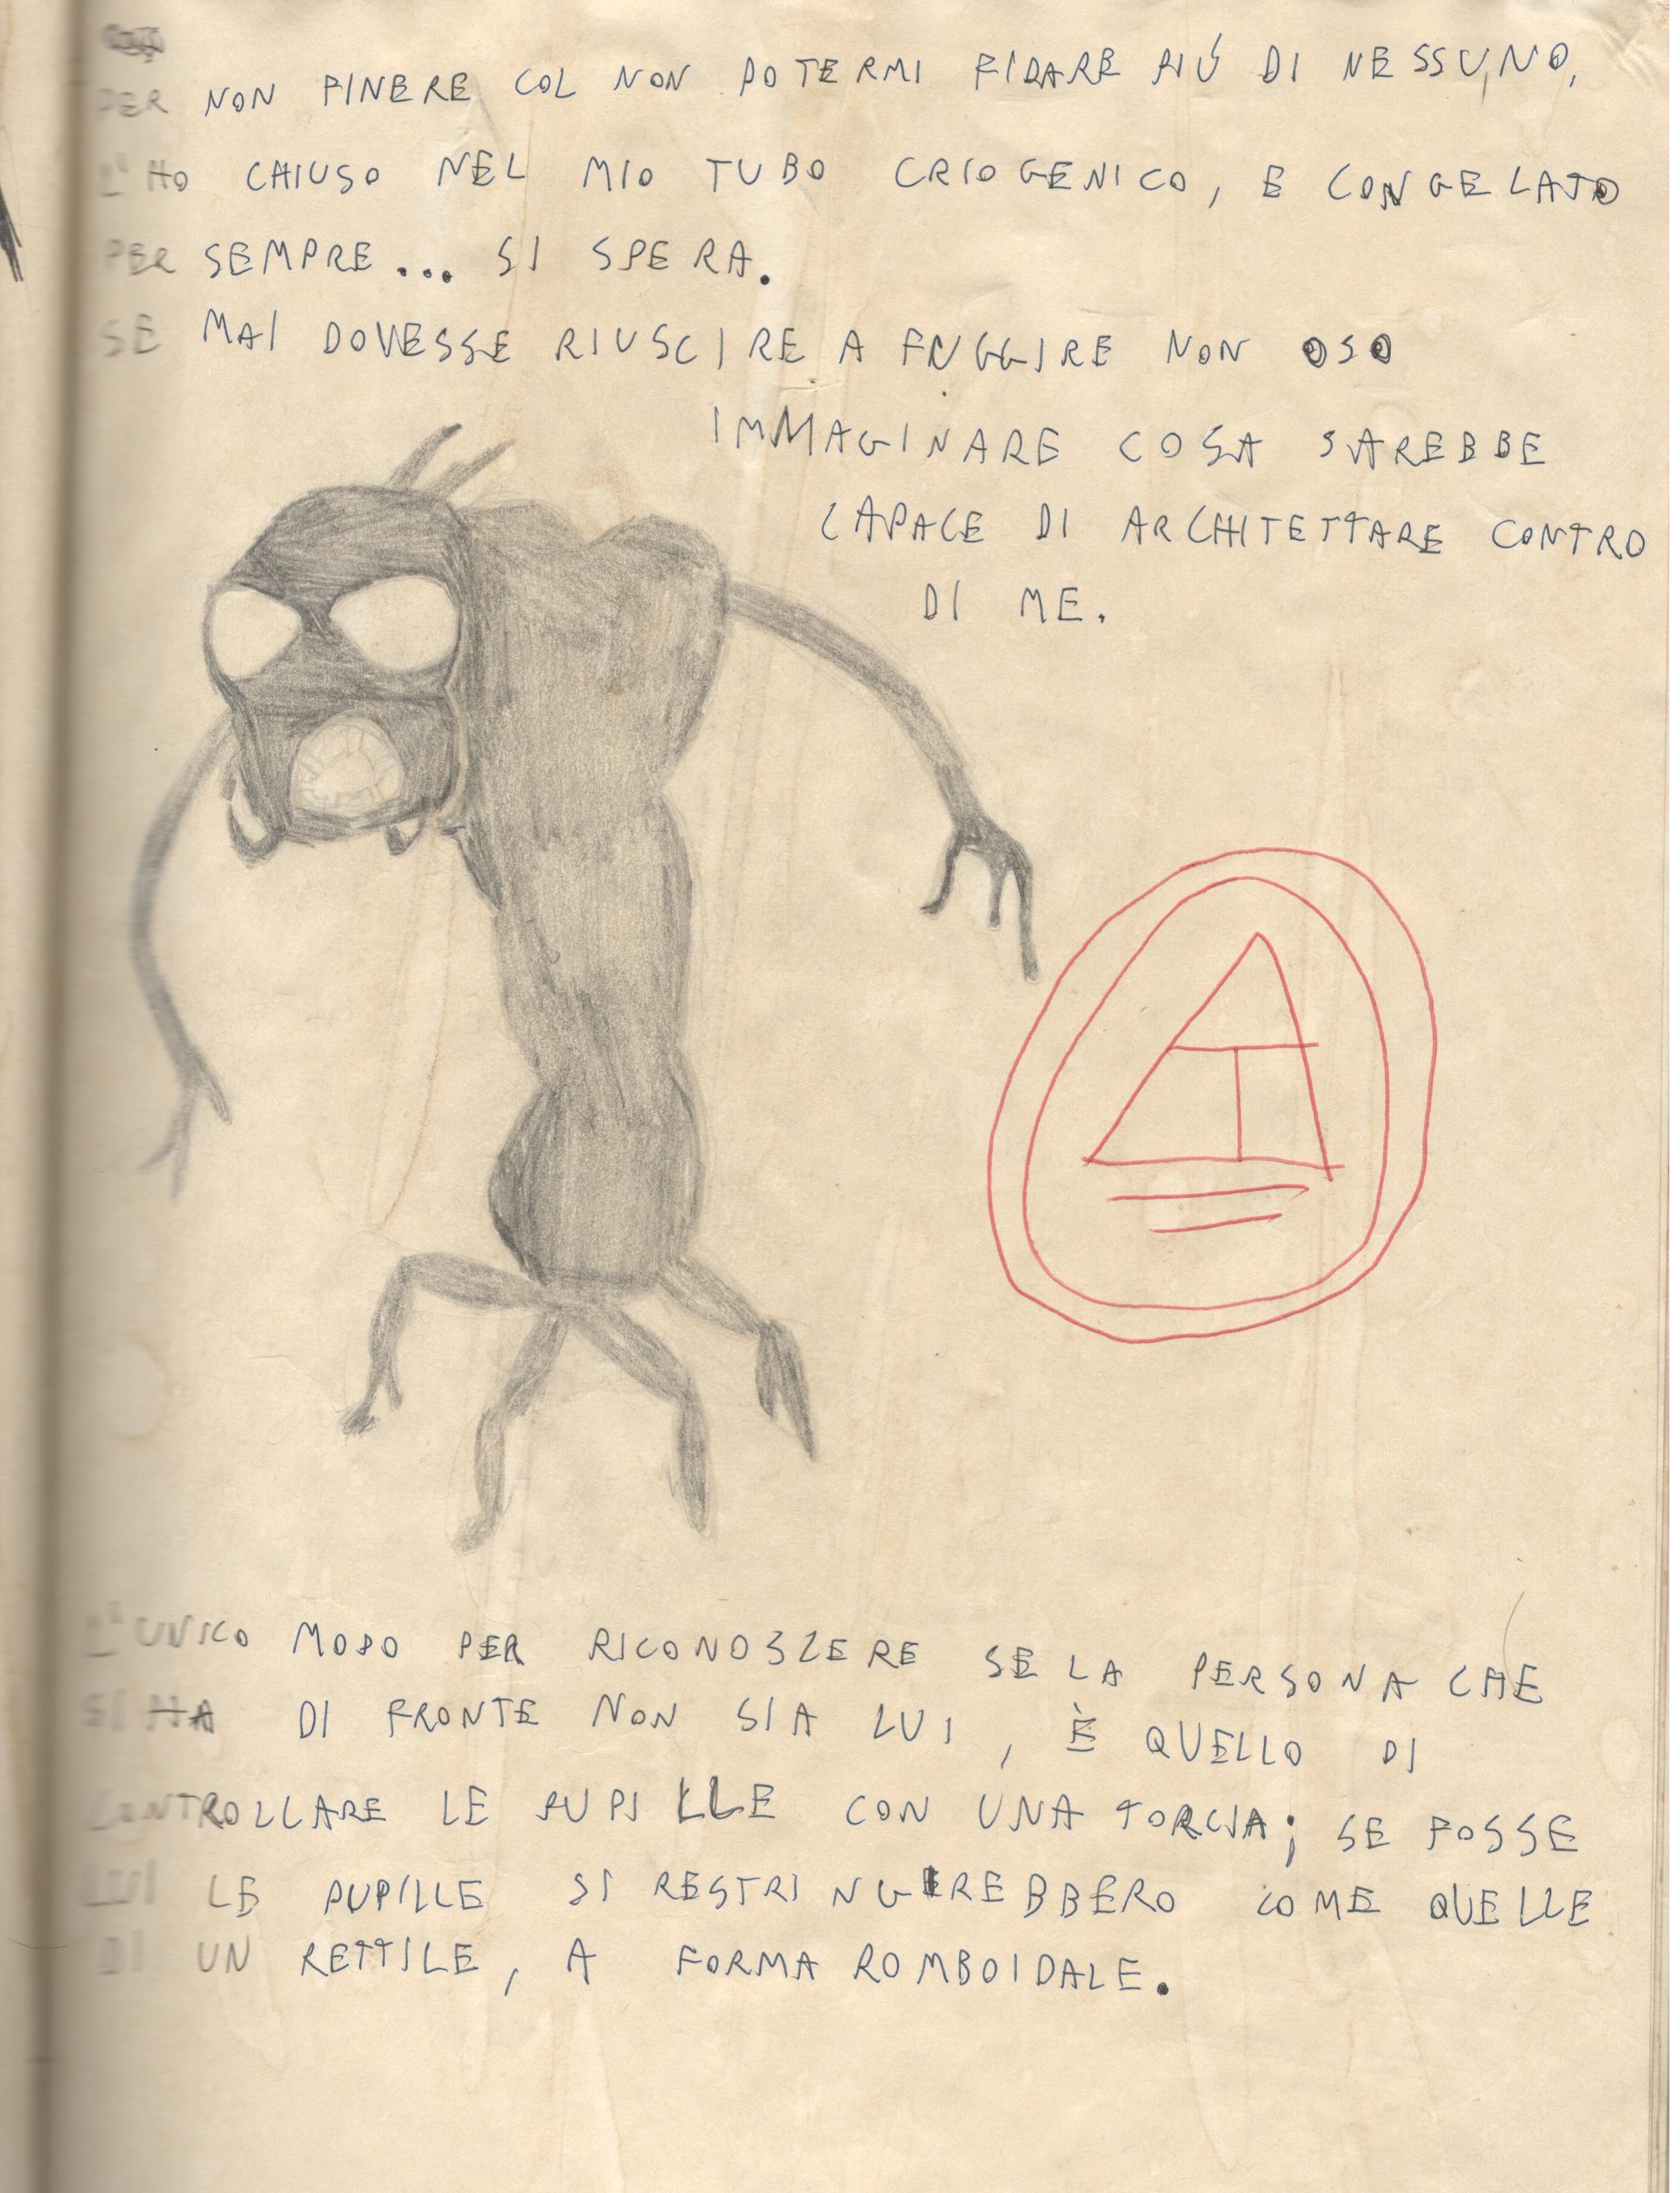 PER NON FINERE COL NON POTERMI FIDARE PIÚ DI NESSUNO,
L'HO CHIUSO NEL MIO TUBO CRIOGENICO, E CONGELATO
PER SEMPRE... SI SPERA.
SE MAI DOVESSE RIUSCIRE A FUGGIRE NON OSO
IMMAGINARE COSA SAREBBE
CAPACE DI ARCHITETTARE CONTRO
DI ME.
L'UNICO MODO PER RICONOSCERE SE LA PERSONA CHE
SI HA DI FRONTE NON SIA LUI, È QUELLO DI
CONTROLLARE LE PUPILLE CON UNA TORCIA; SE FOSSE
LUI LE PUPILLE SI RESTRINGEREBBERO COME QUELLE
DI UN RETTILE, A FORMA ROMBOIDALE.